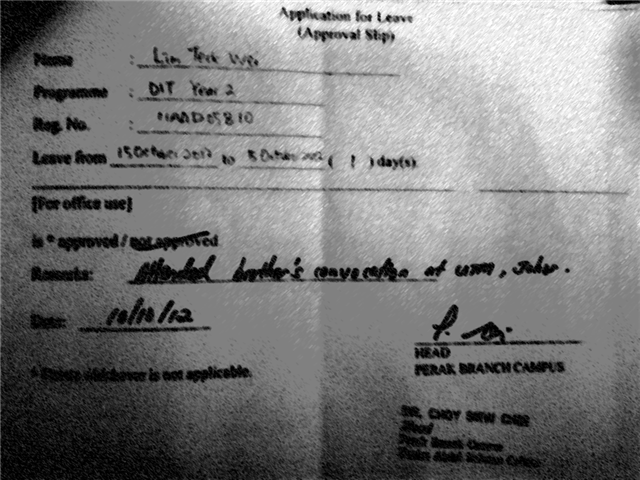 Application for Leave
(Approval Slip)
Name : Lim Teck Wei
Programme : DIT Year 2
Reg. No. :
Leave from 15 October 2012 to 15 October 2012 ( 1 ) day(s)
[For office use]
is * approved / not approved
Remarks: Attended brother's convocation at UTM, Johor.
Date: 10/10/12
HEAD
PERAK BRANCH CAMPUS
* Delete whichever is not applicable.
DR. CHOY SIEW CHEE
Head
Perak Branch Campus